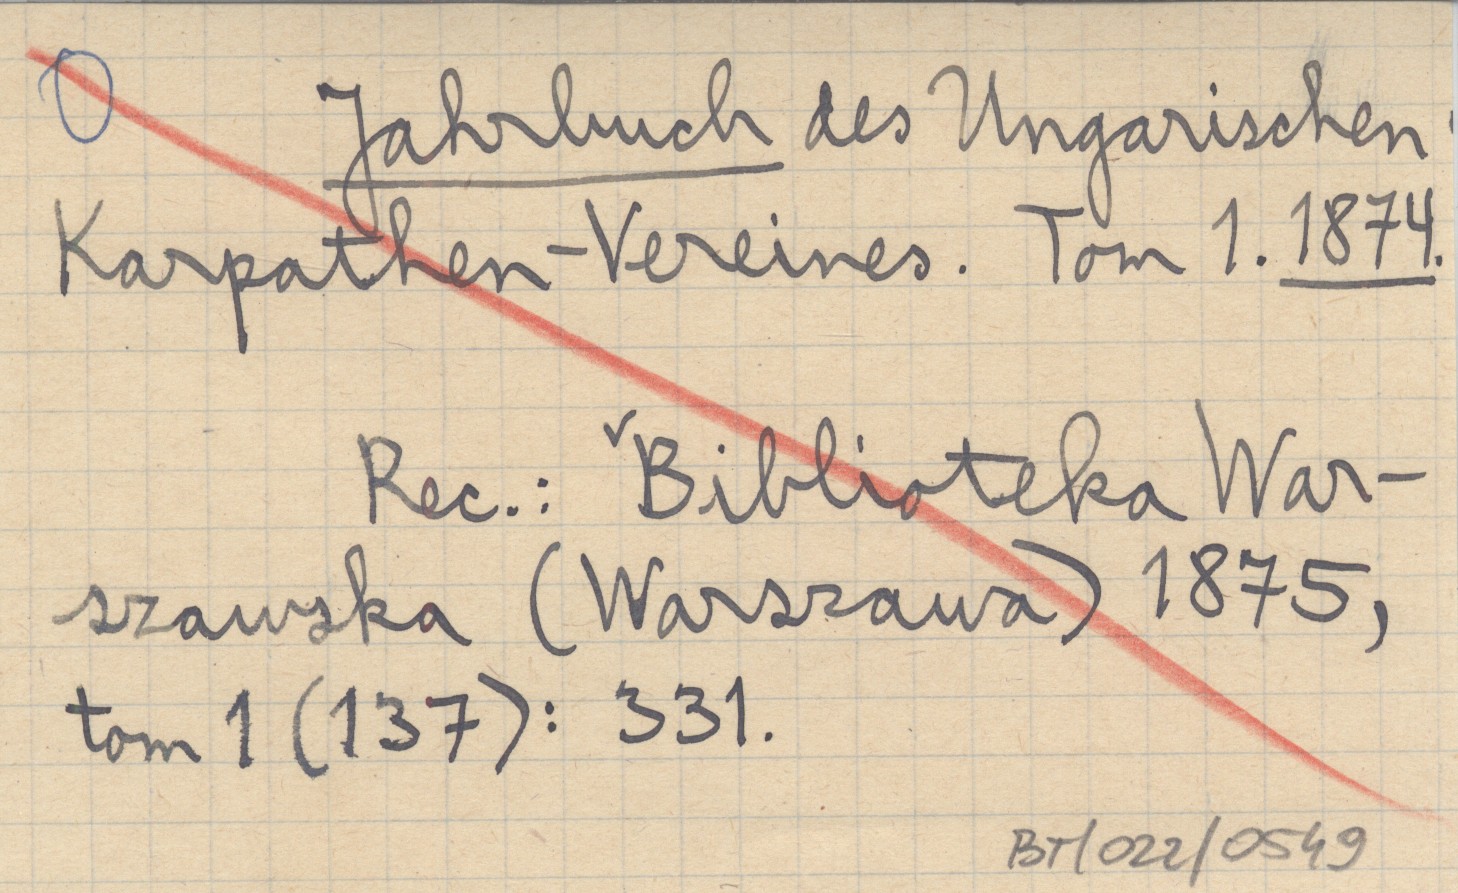 Jahrbuch des Ungarischen
Karpathen-Vereines. Tom 1. 1874.
Rec.: Biblioteka War-
szawska (Warszawa) 1875,
tom 1 (137): 331.
BT/022/0549